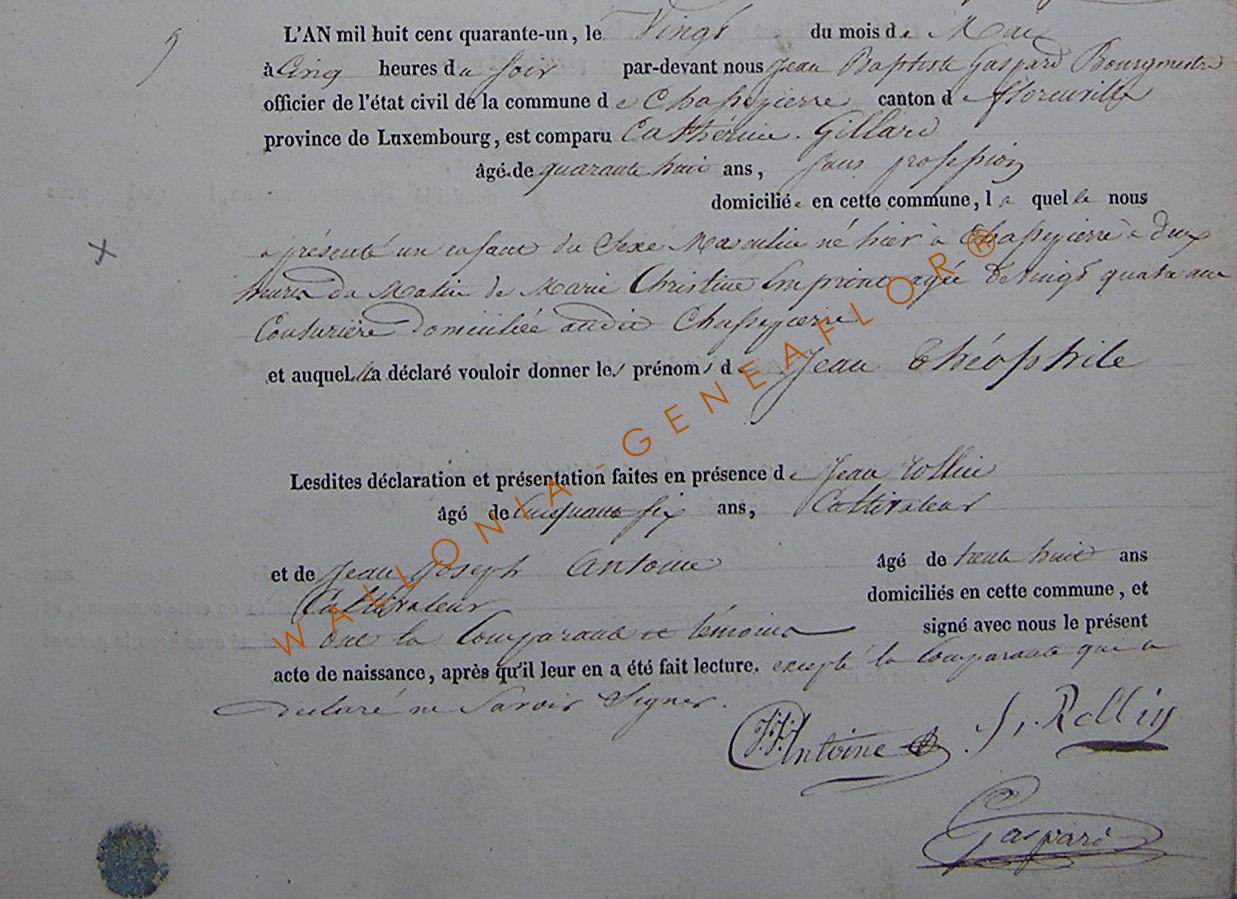 5
L'AN mil huit cent quarante-un, le Vingt du mois de Mai
à Cinq heures du soir par-devant nous Jean Baptiste Gaspard Bourgmestre
officier de l'état civil de la commune de Chassepierre canton de Florenville
province de Luxembourg, est comparu Cathérine Gillard
âgé de quarante huit ans, sans profession
domiciliée en cette commune, la quelle nous
a présenté un enfant du Sexe Masculin né hier à Chassepierre à deux
heures du Matin de Marie Christine âgée de vingt quatre ans
Couturière domiciliée audit Chassepierre
et auquel elle a déclaré vouloir donner les prénoms de Jean Théophile
Lesdites déclaration et présentation faites en présence de Jean Rollin
âgé de Cinquante six ans, Cultivateur
et de Jean Joseph Antoine âgé de trente huit ans
Cultivateur domiciliés en cette commune, et
ont la Comparante et témoins signé avec nous le présent
acte de naissance, après qu'il leur en a été fait lecture. excepté la Comparante qui a
déclaré ne Savoir Signer.
JJ Antoine J. Rollin
Gaspard
WALLONIA-GENEAFLOR®